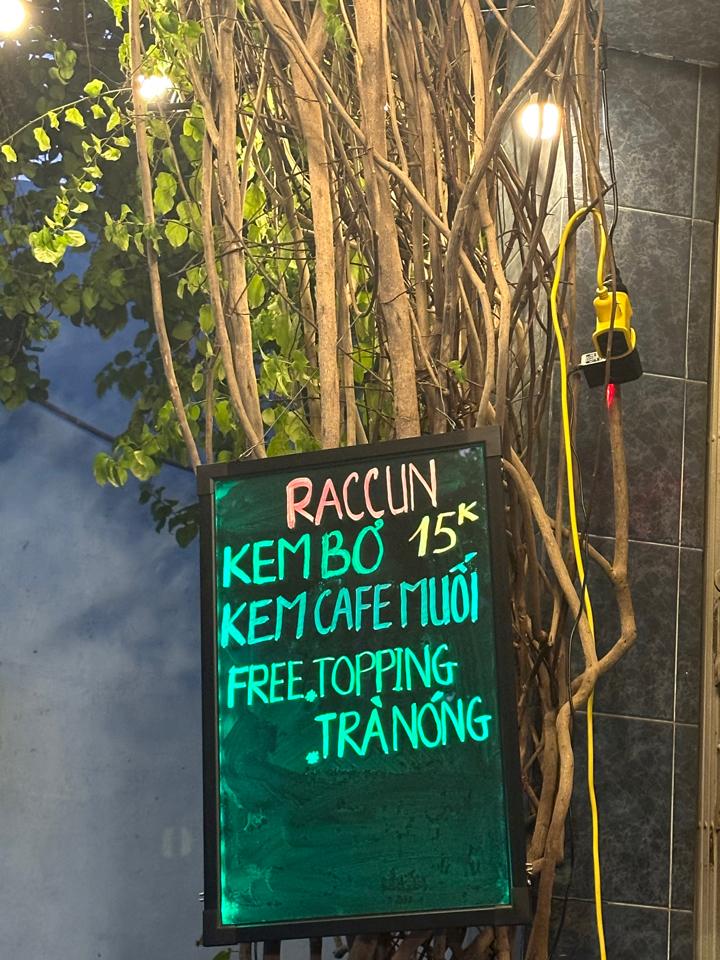 RACCUN
KEM BƠ 15K
KEM CAFE MUỐI
FREE. TOPPING
. TRÀ NÓNG